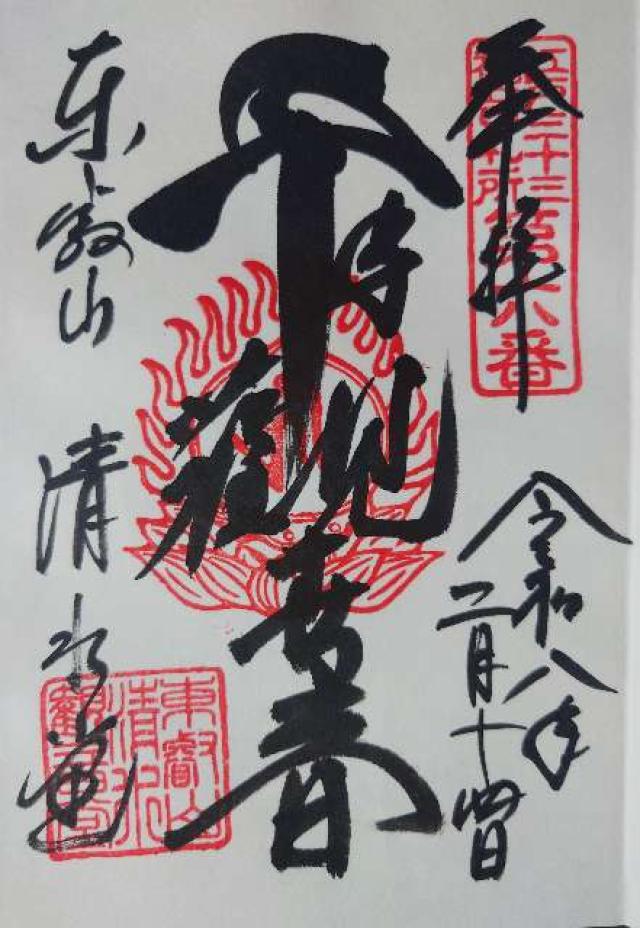 奉拝
江戸三十三
札所第六番
令和八年
二月十四日
千手觀世音
東叡山 清水堂
東叡山
清水
觀音堂